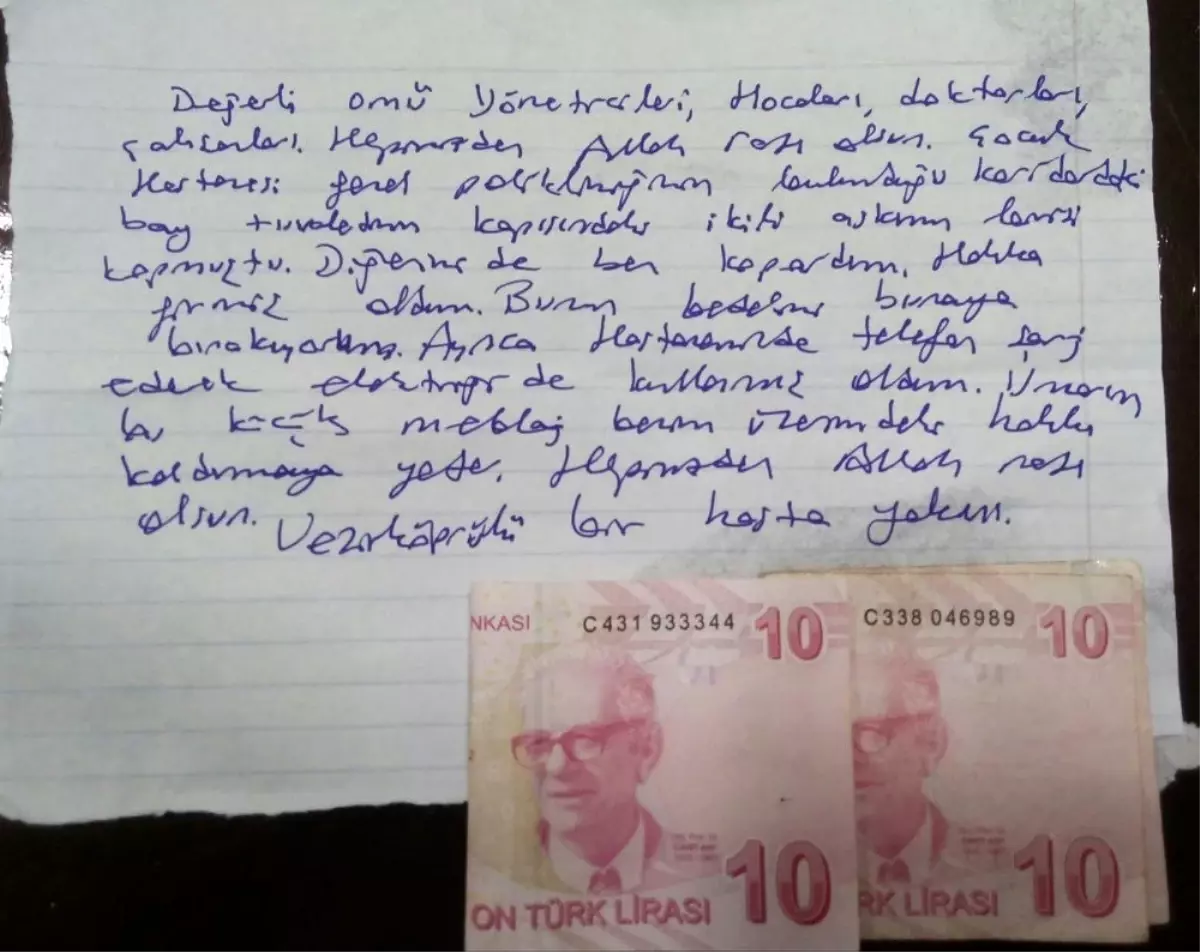 Değerli OMÜ Yöneticileri, Hocaları, doktorları,
çalışanları. Hepinizden Allah razı olsun. Çocuk
Hastanesi genel polikliniğinin bulunduğu koridordaki
bay tuvaletinin kapısındaki ikili askının birisi
kopmuştu. Diğerini de ben kopardım. Hakka
girmiş oldum. Bunun bedelini buraya
bırakıyorum. Ayrıca Hastanemizde telefon şarj
ederek elektriği de kullanmış oldum. Umarım
bu küçük meblağ benim üzerimdeki hakkı
kaldırmaya yeter. Hepinizden Allah razı
olsun. Vezirköprülü bir hasta yakını.
NKASI C431 933344 10 C338 046989 10
10 10
ON TÜRK LİRASI RK LİRASI